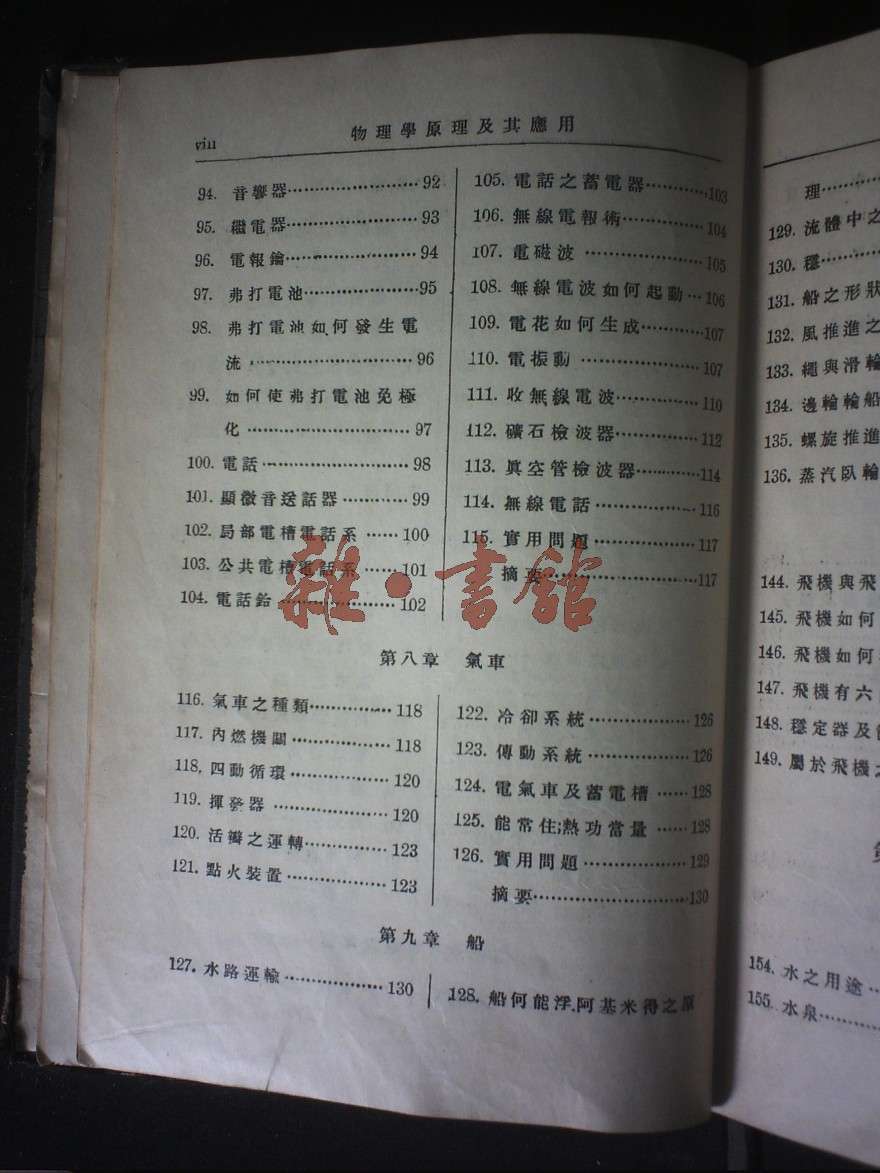 viii
物理學原理及其應用
94. 音響器··················92
95. 繼電器··················93
96. 電報鑰··················94
97. 弗打電池··················95
98. 弗打電池如何發生電
流··················96
99. 如何使弗打電池免極
化··················97
100. 電話··················98
101. 顯微音送話器··········99
102. 局部電槽電話系······100
103. 公共電槽電話系······101
104. 電話鈴··················102
105. 電話之蓄電器··········103
106. 無線電報術··········104
107. 電磁波··················105
108. 無線電波如何起動···106
109. 電花如何生成··········107
110. 電振動··················107
111. 收無線電波··········110
112. 礦石檢波器··········112
113. 眞空管檢波器··········114
114. 無線電話··········116
115. 實用問題··················117
摘要··················117
第八章 氣車
116. 氣車之種類··········118
117. 內燃機關··········118
118. 四動循環··········120
119. 揮發器··········120
120. 活瓣之運轉··········123
121. 點火裝置··········123
122. 冷卻系統··········126
123. 傳動系統··········126
124. 電氣車及蓄電槽······128
125. 能常住;熱功當量······128
126. 實用問題··········129
摘要··················130
第九章 船
127. 水路運輸··········130
128. 船何能浮.阿基米得之原
理······
129. 流體中之
130. 穩······
131. 船之形狀
132. 風推進之
133. 繩與滑輪
134. 邊輪輪船
135. 螺旋推進
136. 蒸汽臥輪
144. 飛機與飛
145. 飛機如何
146. 飛機如何
147. 飛機有六
148. 穩定器及
149. 屬於飛機
154. 水之用途
155. 水泉······
雜·書館